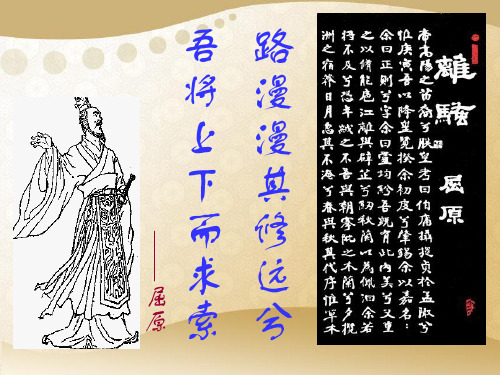 路漫漫其修远兮
吾将上下而求索
——屈原
離騷 屈原
帝高陽之苗裔兮朕皇考曰伯庸攝提貞於孟陬兮
惟庚寅吾以降皇覽揆余初度兮肇錫余以嘉名：
余曰正則兮字余曰靈均紛吾既有此內美兮又重
之以脩能扈江離與辟芷兮紉秋蘭以為佩汩余若
將不及兮恐年歲之不吾與朝搴阰之木蘭兮夕攬
洲之宿莽日月忽其不淹兮春與秋其代序惟草木